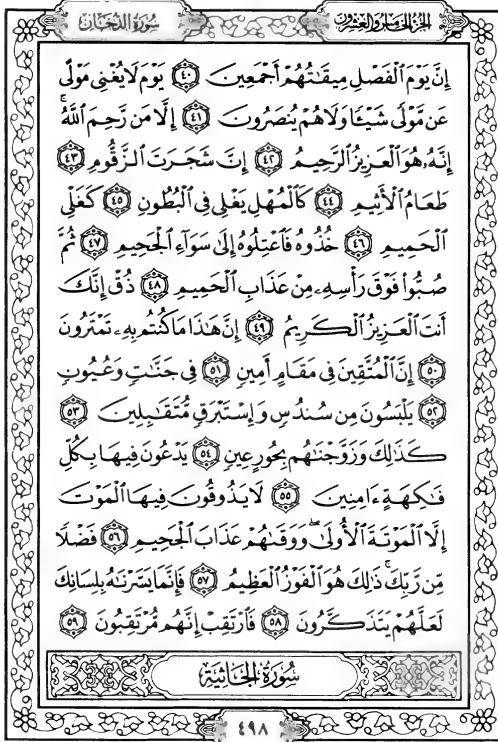 سُورَةُ الدُّخَانِ
الجُزْءُ الخَامِسُ وَالعِشْرُونَ
إِنَّ يَوْمَ ٱلْفَصْلِ مِيقَٰتُهُمْ أَجْمَعِينَ ٤٠ يَوْمَ لَا يُغْنِى مَوْلًى
عَن مَّوْلًى شَيْـًٔا وَلَا هُمْ يُنصَرُونَ ٤١ إِلَّا مَن رَّحِمَ ٱللَّهُۚ
إِنَّهُۥ هُوَ ٱلْعَزِيزُ ٱلرَّحِيمُ ٤٢ إِنَّ شَجَرَتَ ٱلزَّقُّومِ ٤٣
طَعَامُ ٱلْأَثِيمِ ٤٤ كَٱلْمُهْلِ يَغْلِى فِى ٱلْبُطُونِ ٤٥ كَغَلْىِ
ٱلْحَمِيمِ ٤٦ خُذُوهُ فَٱعْتِلُوهُ إِلَىٰ سَوَآءِ ٱلْجَحِيمِ ٤٧ ثُمَّ
صُبُّوا۟ فَوْقَ رَأْسِهِۦ مِنْ عَذَابِ ٱلْحَمِيمِ ٤٨ ذُقْ إِنَّكَ
أَنتَ ٱلْعَزِيزُ ٱلْكَرِيمُ ٤٩ إِنَّ هَٰذَا مَا كُنتُم بِهِۦ تَمْتَرُونَ
٥٠ إِنَّ ٱلْمُتَّقِينَ فِى مَقَامٍ أَمِينٍ ٥١ فِى جَنَّٰتٍ وَعُيُونٍ
٥٢ يَلْبَسُونَ مِن سُندُسٍ وَإِسْتَبْرَقٍ مُّتَقَٰبِلِينَ ٥٣
كَذَٰلِكَ وَزَوَّجْنَٰهُم بِحُورٍ عِينٍ ٥٤ يَدْعُونَ فِيهَا بِكُلِّ
فَٰكِهَةٍ ءَامِنِينَ ٥٥ لَا يَذُوقُونَ فِيهَا ٱلْمَوْتَ
إِلَّا ٱلْمَوْتَةَ ٱلْأُولَىٰۖ وَوَقَىٰهُمْ عَذَابَ ٱلْجَحِيمِ ٥٦ فَضْلًا
مِّن رَّبِّكَۚ ذَٰلِكَ هُوَ ٱلْفَوْزُ ٱلْعَظِيمُ ٥٧ فَإِنَّمَا يَسَّرْنَٰهُ بِلِسَانِكَ
لَعَلَّهُمْ يَتَذَكَّرُونَ ٥٨ فَٱرْتَقِبْ إِنَّهُم مُّرْتَقِبُونَ ٥٩
سُورَةُ الجَاثِيَةِ
٤٩٨